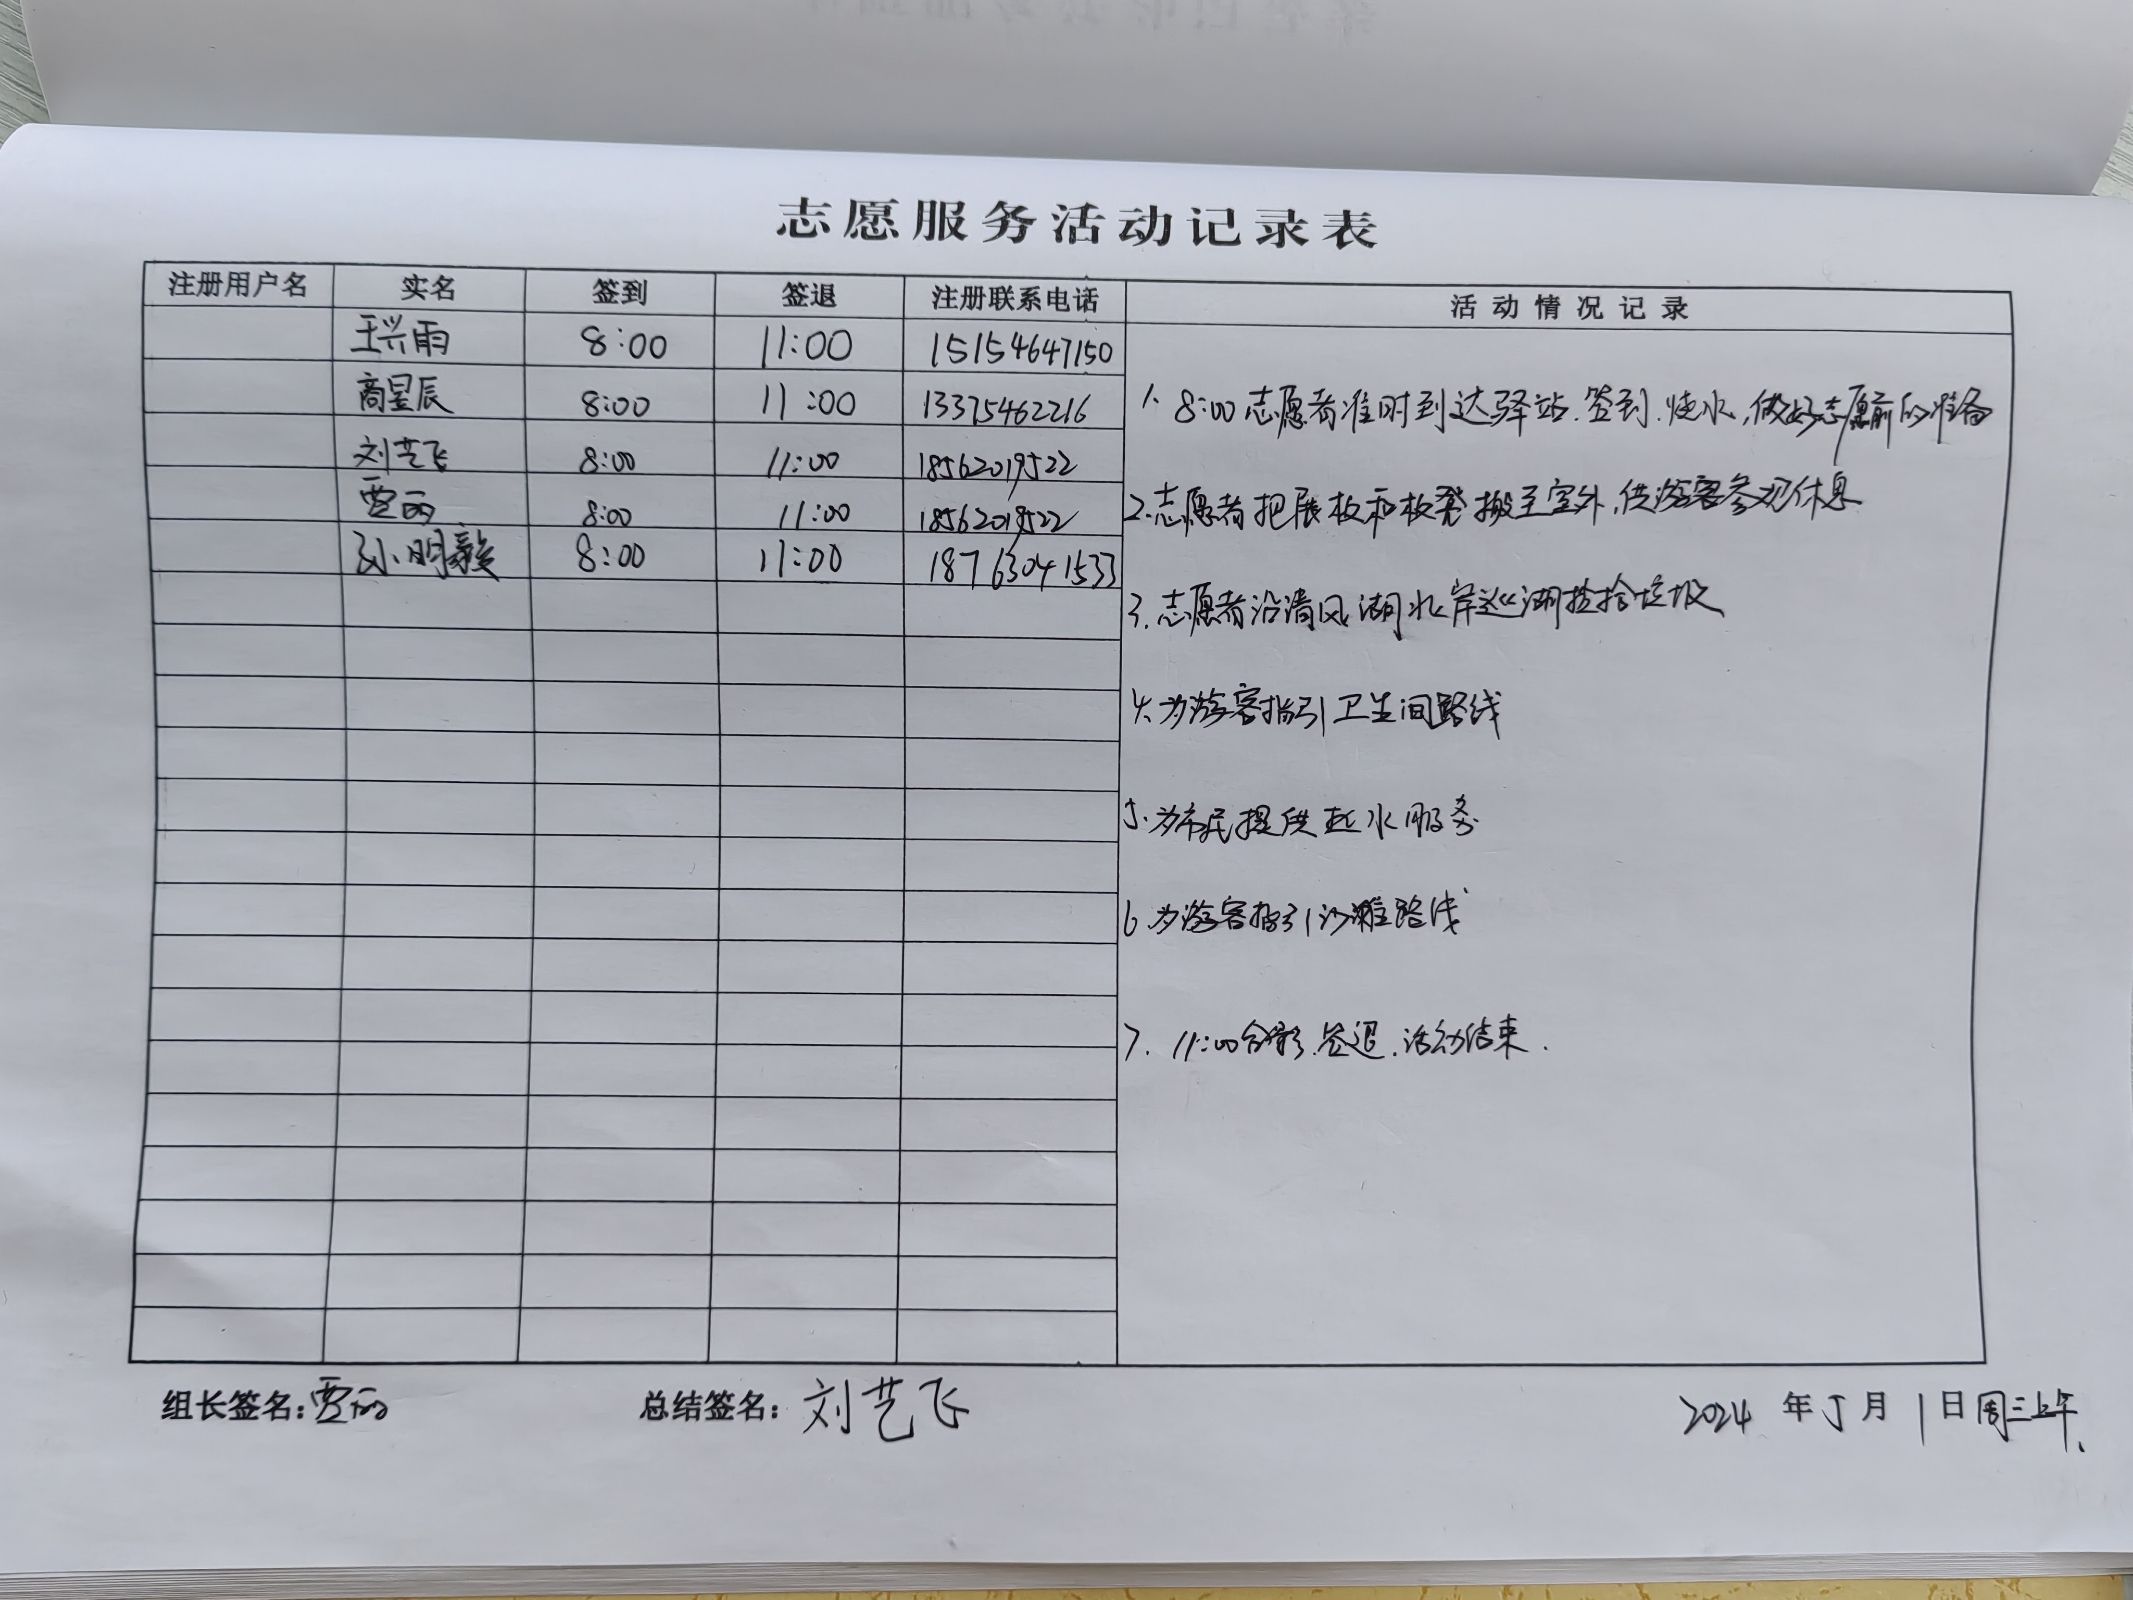 志愿服务活动记录表
注册用户名 实名 签到 签退 注册联系电话 活动情况记录
王兴雨 8:00 11:00 15154647150
商昱辰 8:00 11:00 13375462216
刘艺飞 8:00 11:00 18562019522
贾丽 8:00 11:00 18562019522
孙明毅 8:00 11:00 18763041533
1. 8:00志愿者准时到达驿站.签到.烧水,做好志愿前的准备
2.志愿者把展板和板凳搬至室外,供游客参观休息
3.志愿者沿清风湖北岸巡湖捡拾垃圾
4.为游客指引卫生间路线
5.为市民提供热水服务
6.为游客指引沙滩路线
7. 11:00合影.签退.活动结束.
组长签名:贾丽 总结签名:刘艺飞 2024年5月1日周三上午.